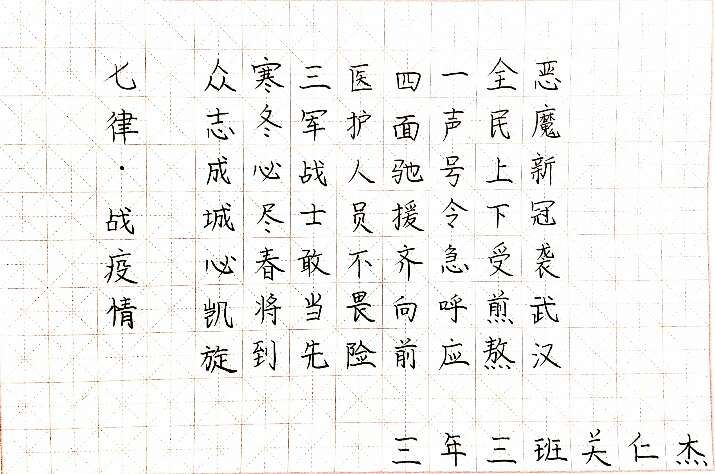 七律·战疫情
恶魔新冠袭武汉
全民上下受煎熬
一声号令急呼应
四面驰援齐向前
医护人员不畏险
三军战士敢当先
寒冬必尽春将到
众志成城心凯旋
三年三班关仁杰